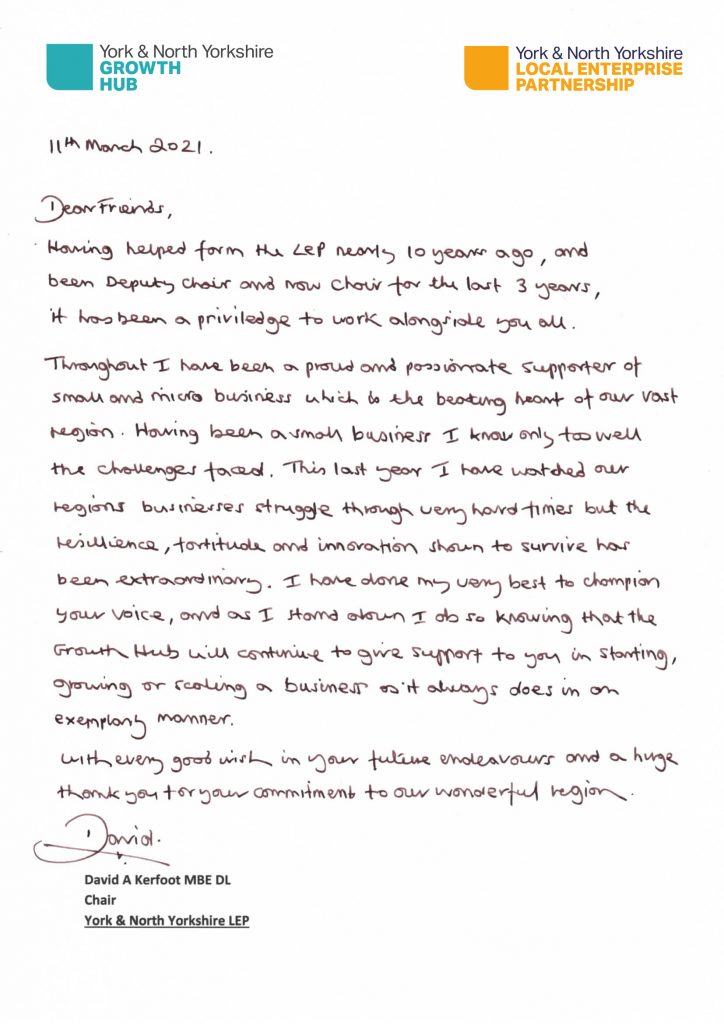 York & North Yorkshire
GROWTH
HUB
York & North Yorkshire
LOCAL ENTERPRISE
PARTNERSHIP
11th March 2021.
Dear Friends,
Having helped form the LEP nearly 10 years ago, and
been Deputy Chair and now Chair for the last 3 years,
it has been a priviledge to work alongside you all.
Throughout I have been a proud and passionate supporter of
small and micro business which is the beating heart of our vast
region. Having been a small business I know only too well
the challenges faced. This last year I have watched our
regions businesses struggle through very hard times but the
resillience, fortitude and innovation shown to survive has
been extraordinary. I have done my very best to champion
your voice, and as I stand down I do so knowing that the
Growth Hub will continue to give support to you in starting,
growing or scaling a business as it always does in an
exemplary manner.
With every good wish in your future endeavours and a huge
thank you for your commitment to our wonderful region.
David.
David A Kerfoot MBE DL
Chair
York & North Yorkshire LEP